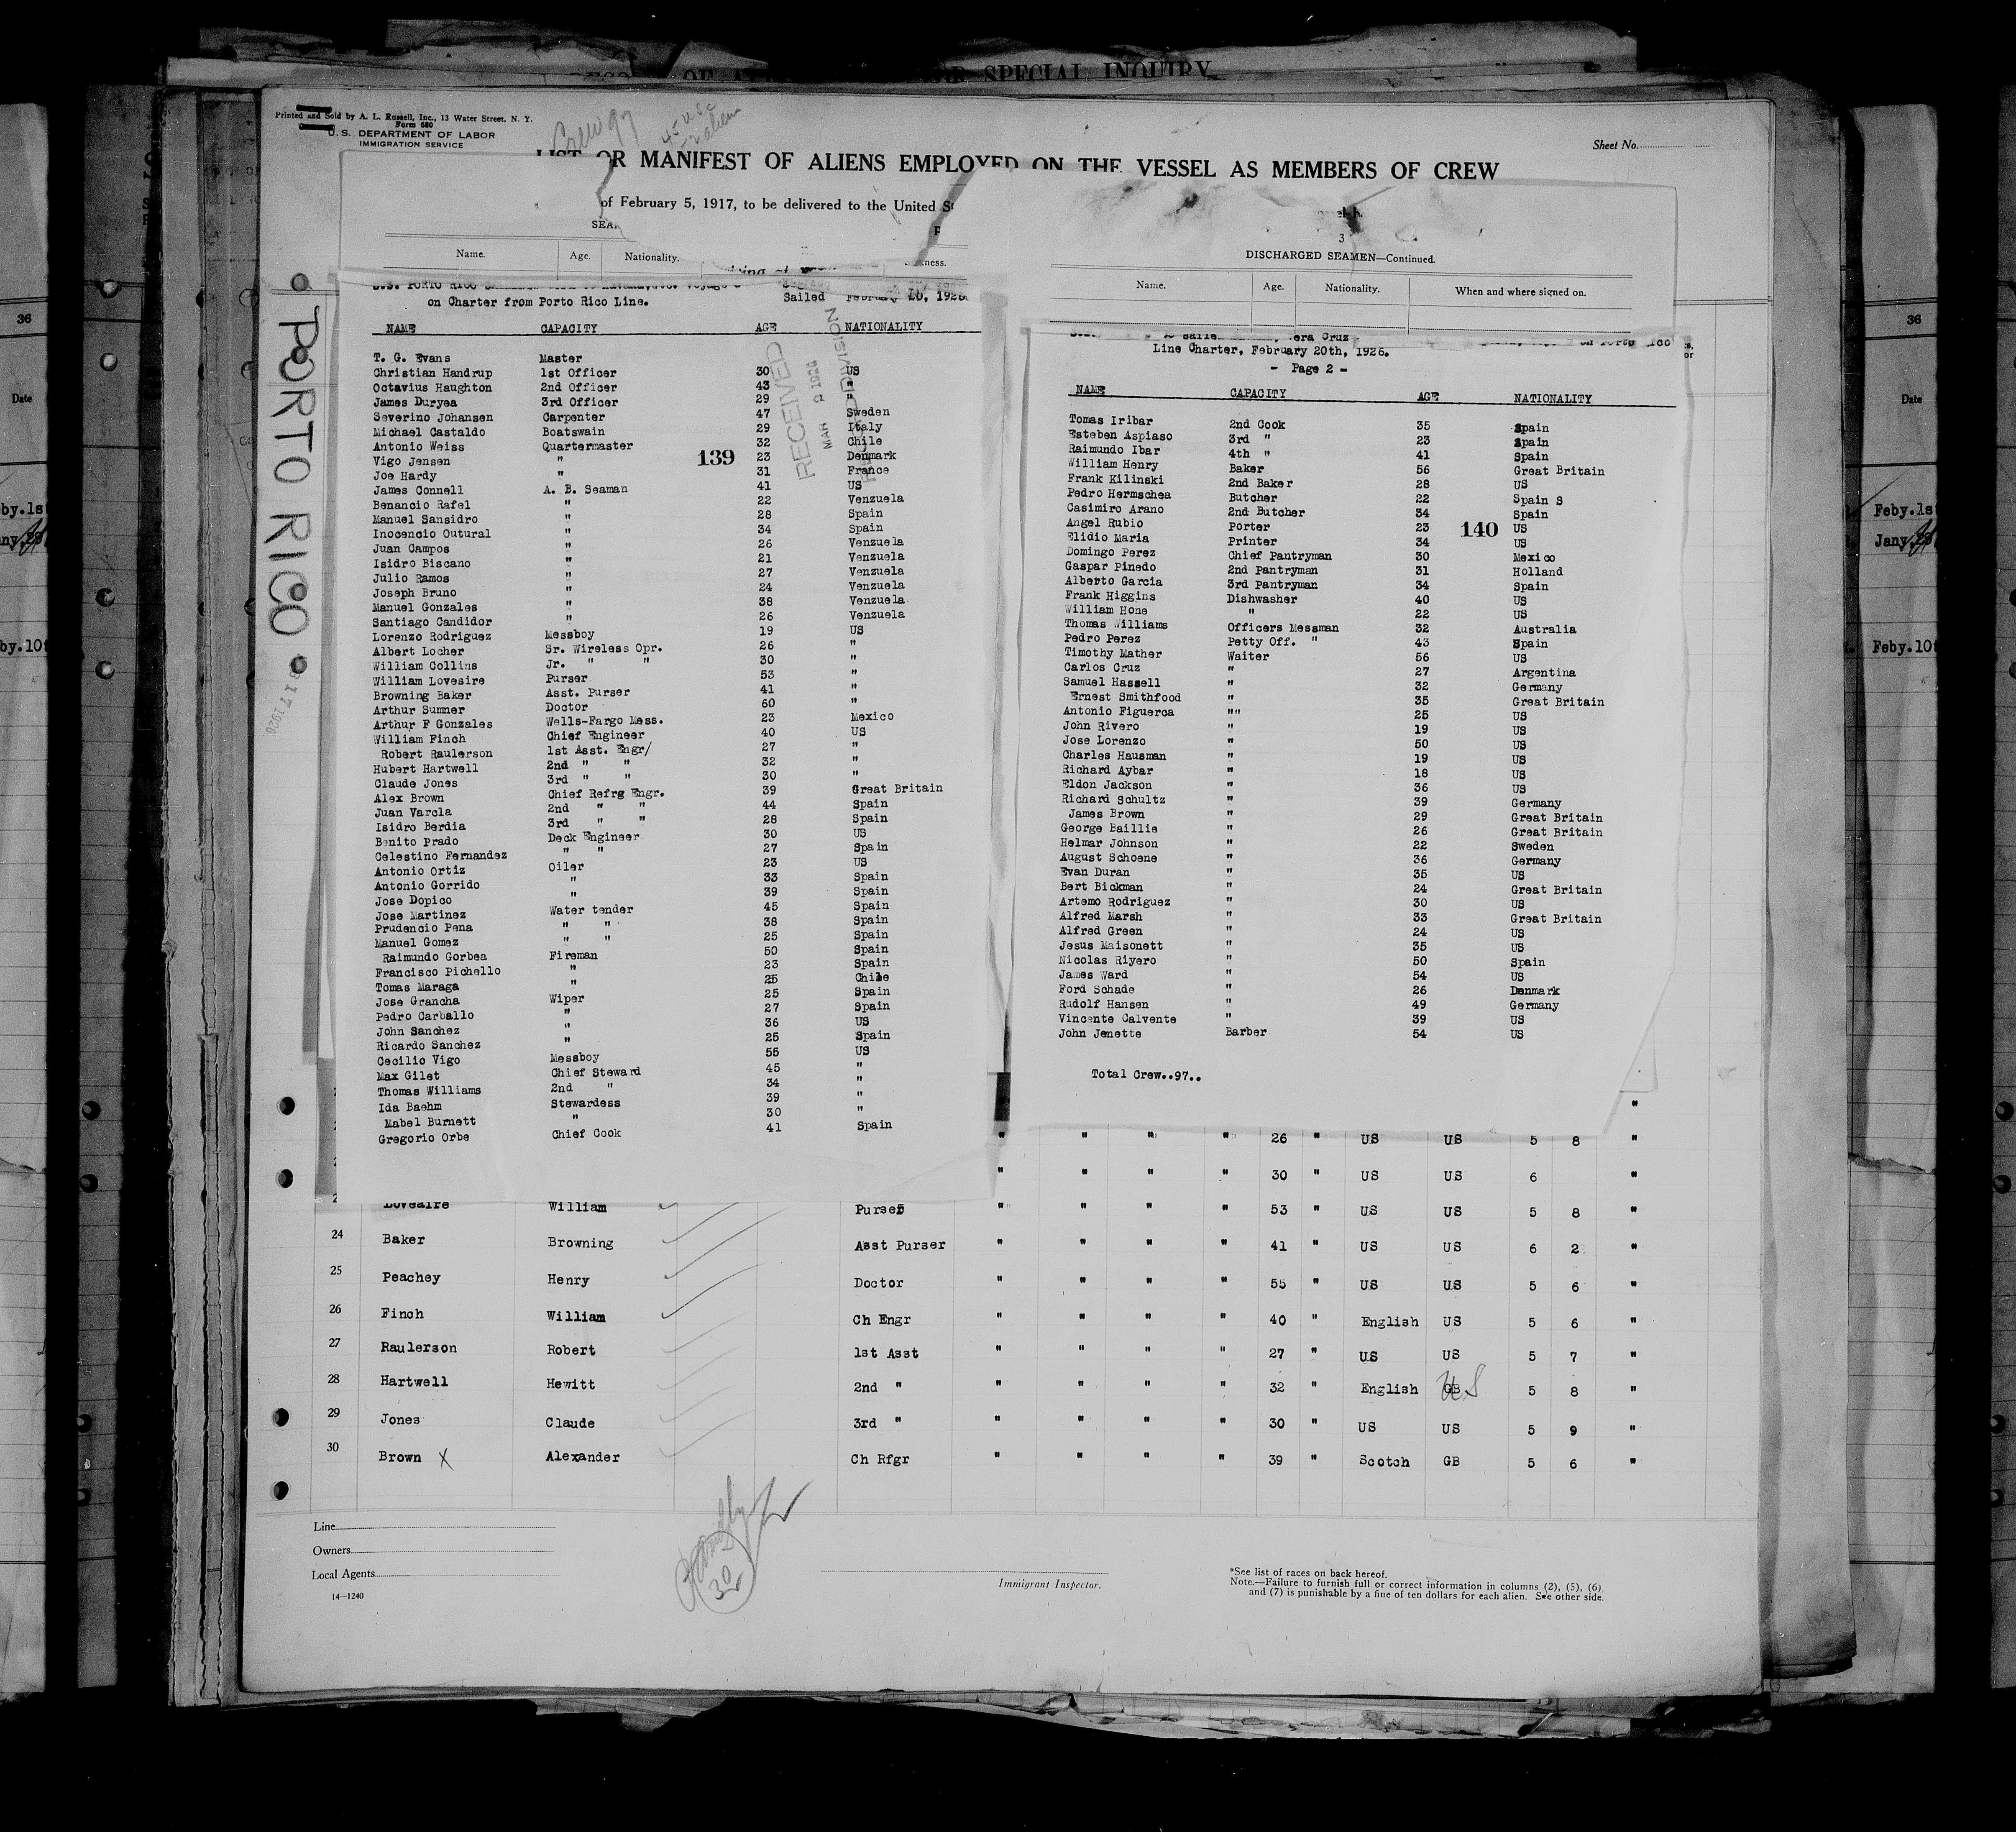 RECORD OF SPECIAL INQUIRY
Printed and Sold by A. L. Russell, Inc., 13 Water Street, N. Y.
Form 680
U. S. DEPARTMENT OF LABOR
IMMIGRATION SERVICE
Crew 97
45 USC
Sheet No.
LIST OR MANIFEST OF ALIENS EMPLOYED ON THE VESSEL AS MEMBERS OF CREW
of February 5, 1917, to be delivered to the United
Name. Age. Nationality.
PORTO RICO
S.S. PORTO RICO
on Charter from Porto Rico Line. Sailed February 20, 1926
NAME CAPACITY AGE NATIONALITY
RECEIVED
MAR 2 1926
DIVISION
139
T. G. Evans Master
Christian Handrup 1st Officer 30 US
Octavius Haughton 2nd Officer 43 "
James Duryea 3rd Officer 29 "
Severino Johansen Carpenter 47 Sweden
Michael Castaldo Boatswain 29 Italy
Antonio Weiss Quartermaster 32 Chile
Vigo Jensen " 23 Denmark
Joe Hardy " 31 France
James Connell A. B. Seaman 41 US
Benancio Rafel " 22 Venzuela
Manuel Sansidro " 28 Spain
Inocencio Outural " 34 Spain
Juan Campos " 26 Venzuela
Isidro Biscano " 21 Venzuela
Julio Ramos " 27 Venzuela
Joseph Bruno " 24 Venzuela
Manuel Gonzales " 38 Venzuela
Santiago Candidor " 26 Venzuela
Lorenzo Rodriguez Messboy 19 US
Albert Locher Sr. Wireless Opr. 26 "
William Collins Jr. " " 30 "
William Lovesire Purser 53 "
Browning Baker Asst. Purser 41 "
Arthur Sumner Doctor 60 "
Arthur F Gonzales Wells-Fargo Mess. 23 Mexico
William Finch Chief Engineer 40 US
Robert Raulerson 1st Asst. Engr/ 27 "
Hubert Hartwell 2nd " " 32 "
Claude Jones 3rd " " 30 "
Alex Brown Chief Refrg Engr. 39 Great Britain
Juan Varela 2nd " " 44 Spain
Isidro Berdia 3rd " " 28 Spain
Benito Prado Deck Engineer 30 US
Celestino Fernandez " " 27 Spain
Antonio Ortiz Oiler 23 US
Antonio Gorrido " 33 Spain
Jose Dopico " 39 Spain
Jose Martinez Water tender 45 Spain
Prudencio Pena " " 38 Spain
Manuel Gomez " " 25 Spain
Raimundo Gorbea Fireman 50 Spain
Francisco Pichello " 23 Spain
Tomas Maraga " 25 Chile
Jose Grancha Wiper 25 Spain
Pedro Carballo " 27 Spain
John Sanchez " 36 US
Ricardo Sanchez " 25 Spain
Cecilio Vigo Messboy 55 US
Max Gilet Chief Steward 45 "
Thomas Williams 2nd " 34 "
Ida Baehm Stewardess 39 "
Mabel Burnett " 30 "
Gregorio Orbe Chief Cook 41 Spain
3
DISCHARGED SEAMEN—Continued.
Name. Age. Nationality. When and where signed on.
Vera Cruz on Porto Rico
Line Charter, February 20th, 1926.
- Page 2 -
NAME CAPACITY AGE NATIONALITY
140
Tomas Iribar 2nd Cook 35 Spain
Esteben Aspiaso 3rd " 23 Spain
Raimundo Ibar 4th " 41 Spain
William Henry Baker 56 Great Britain
Frank Kilinski 2nd Baker 28 US
Pedro Hermschea Butcher 22 Spain S
Casimiro Arano 2nd Butcher 34 Spain
Angel Rubio Porter 23 US
Elidio Maria Printer 34 US
Domingo Perez Chief Pantryman 30 Mexico
Gaspar Pinedo 2nd Pantryman 31 Holland
Alberto Garcia 3rd Pantryman 34 Spain
Frank Higgins Dishwasher 40 US
William Hone " 22 US
Thomas Williams Officers Messman 32 Australia
Pedro Perez Petty Off. " 43 Spain
Timothy Mather Waiter 56 US
Carlos Cruz " 27 Argentina
Samuel Hassell " 32 Germany
Ernest Smithfood " 35 Great Britain
Antonio Figuerca "" 25 US
John Rivero " 19 US
Jose Lorenzo " 50 US
Charles Hausman " 19 US
Richard Aybar " 18 US
Eldon Jackson " 36 US
Richard Schultz " 39 Germany
James Brown " 29 Great Britain
George Baillie " 26 Great Britain
Helmar Johnson " 22 Sweden
August Schoene " 36 Germany
Evan Duran " 35 US
Bert Bickman " 24 Great Britain
Artemo Rodriguez " 30 US
Alfred Marsh " 33 Great Britain
Alfred Green " 24 US
Jesus Maisonett " 35 US
Nicolas Riyero " 50 Spain
James Ward " 54 US
Ford Schade " 26 Denmark
Rudolf Hansen " 49 Germany
Vincente Calvente " 39 US
John Jenette Barber 54 US
Total Crew..97..
" " " " 26 " US US 5 8 "
" " " " 30 " US US 6 "
Lovesire William Purser " " " " 53 " US US 5 8 "
24 Baker Browning Asst Purser " " " " 41 " US US 6 2 "
25 Peachey Henry Doctor " " " " 55 " US US 5 6 "
26 Finch William Ch Engr " " " " 40 " English US 5 6 "
27 Raulerson Robert 1st Asst " " " " 27 " US US 5 7 "
28 Hartwell Hewitt 2nd " " " " " 32 " English GB US 5 8 "
29 Jones Claude 3rd " " " " " 30 " US US 5 9 "
30 Brown X Alexander Ch Rfgr " " " " 39 " Scotch GB 5 6 "
Line
Owners
Local Agents
14—1240
30
Immigrant Inspector.
*See list of races on back hereof.
Note.—Failure to furnish full or correct information in columns (2), (5), (6)
and (7) is punishable by a fine of ten dollars for each alien. See other side.
36
Date
Feby.1st
Jany.28
Feby.10t